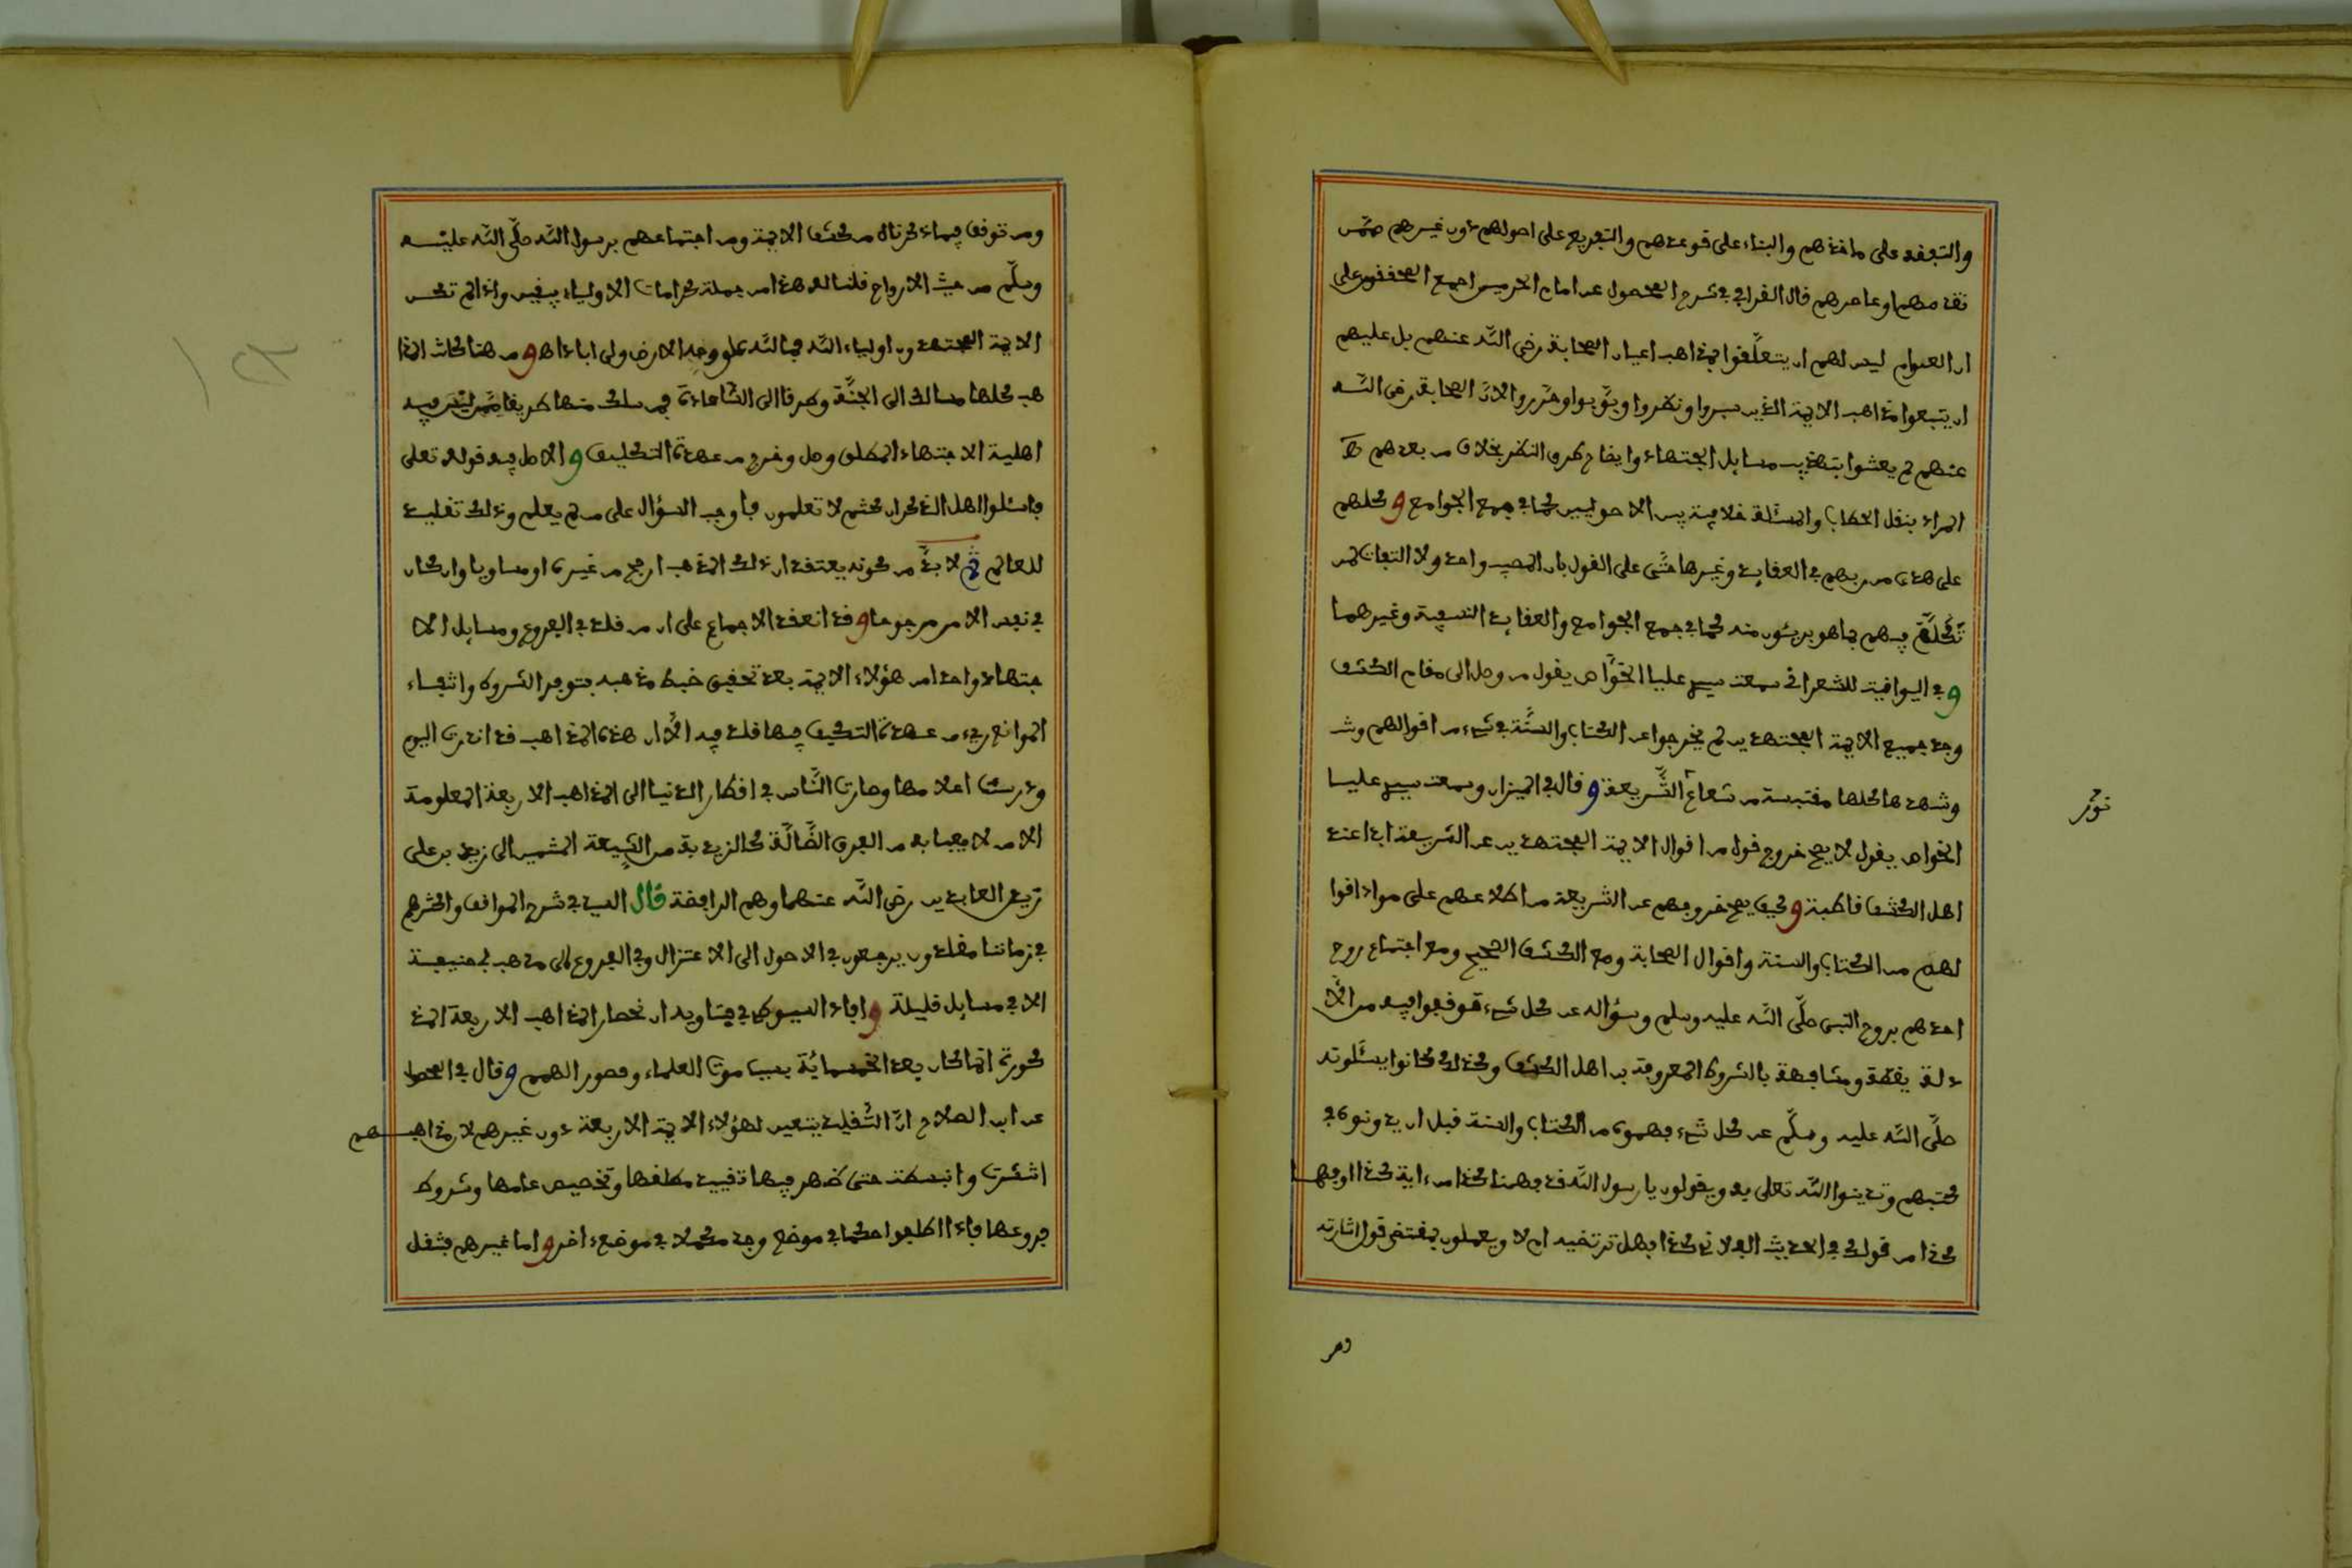 والتفقه على مذاهبهم والبناء على قوعدهم والتفريع على اصولهم دون غيرهم ممن
تقدمهم او عاصرهم قال القرافي في شرح المحصول عن امام الحرمين اجمع المحققون على
ان العوام ليس لهم ان يتعلقوا بمذاهب اعيان الصحابة رضي الله عنهم بل عليهم
ان يتبعوا مذاهب الايمة الذين سبروا ونظروا وبوبوا وحرروا لان الصحابة رضي الله
عنهم لم يعتنوا بتهذيب مسايل الاجتهاد وايضاح طرق النظر بخلاف من بعدهم
المراد بنقل الحطاب والمسئلة خلافية بين الاصوليين كما في جمع الجوامع وكلهم
على هدى من ربهم في العقايد وغيرها حتى على القول بان المصيب واحد ولا التفات لمن
تكلم فيهم بما هو بريئون منه كما في جمع الجوامع والعقايد النسفية وغيرهما
وفي اليواقيت للشعراني سمعت سيدي عليا الخواص يقول من وصل الى مقام الكشف
وجد جميع الايمة المجتهدين لم يخرجوا عن الكتاب والسنة في شيء من اقوالهم وش
وشهدها كلها مقتبسة من شعاع الشريعة وقال في الميزان وسمعت سيدي عليا
الخواص يقول لا يصح خروج قول من اقوال الايمة المجتهدين عن الشريعة ابدا عند
اهل الكشف قاطبة وكيف يصح خروجهم عن الشريعة مع اطلاعهم على مواد اقوا
لهم من الكتاب والسنة واقوال الصحابة ومع الكشف الصحيح ومع اجتماع روح
احدهم بروح النبي صلى الله عليه وسلم وسؤاله عن كل شيء توقفوا فيه من الأ
دلة يقظة ومشافهة بالشروط المعروفة بين اهل الكشف وكذلك كانوا يسئلونه
صلى الله عليه وسلم عن كل شيء فهموه من الكتاب والسنة قبل ان يدونوه في
كتبهم ويدينوا الله تعلى به ويقولون يا رسول الله قد فهمنا كذا من ءاية كذا او فهمـ
كذا من قولك في الحديث الفلاني كذا فهل ترتضيه ام لا ويعملون بمقتضى قوله واشارته
ومن
ومن توقف فيما ذكرناه من كشف الايمة ومن اجتماعهم برسول الله صلى الله عليـه
وسلم من حيث الارواح قلنا له هذا من جملة كرامات الاولياء بيقين واذا لم تكن
الايمة المجتهدون اولياء الله فما لله على وجه الارض ولي ابدا اهـ ومن هنا كانت المذا
هب كلها مسالك الى الجنة وطرقا الى السعادة فمن سلك منها طريقا ممن ليس فيه
اهلية الاجتهاد المطلق وصل وخرج من عهدة التكليف والاصل فيه قوله تعلى
فاسئلوا اهل الذكر ان كنتم لا تعلمون فاوجب السؤال على من لم يعلم وذلك تقليد
للعالم ثم لا بد من كونه يعتقد ان ذلك المذهب ارجح من غيره او مساويا وان كان
في نفس الامر مرجوحا وقد انعقد الاجماع على ان من قلد في الفروع ومسايل الا
جتهاد واحدا من هؤلاء الايمة بعد تحقيق ضبط مذهبه بتوفر الشروط وانتفاء
الموانع بريء من عهدة التكليف فيما قلد فيه الا ان هذه المذاهب قد اندرت اليوم
ودرست اعلامها وصارت الناس في اقطار الدنيا الى المذاهب الاربعة المعلومة
الا من لا يعبا به من الفرق الضالة كالزيدية من الشيعة المنتمين الى زيد بن علي
زين العابدين رضي الله عنهما وهم الرافضة قال السيد في شرح المواقف واكثرهم
في زماننا مقلدون يرجعون في الاصول الى الاعتزال وفي الفروع الى مذهب ابي حنيفة
الا في مسايل قليلة وافاد السيوطي في فتاويه ان انحصار المذاهب الاربعة المذ
كورة انما كان بعد الخمسماية بسبب موت العلماء وقصور الهمم وقال في الحطا
عن ابن الصلاح ان التقليد يتعين لهؤلاء الايمة الاربعة دون غيرهم لان مذاهبـهم
انتشرت وانبسطت حتى ظهر فيها تقييد مطلقها وتخصيص عامها وشروط
فروعها فاذا اطلقوا حكما في موضع وجد مكملا في موضع ءاخر واما غيرهم فتنقل